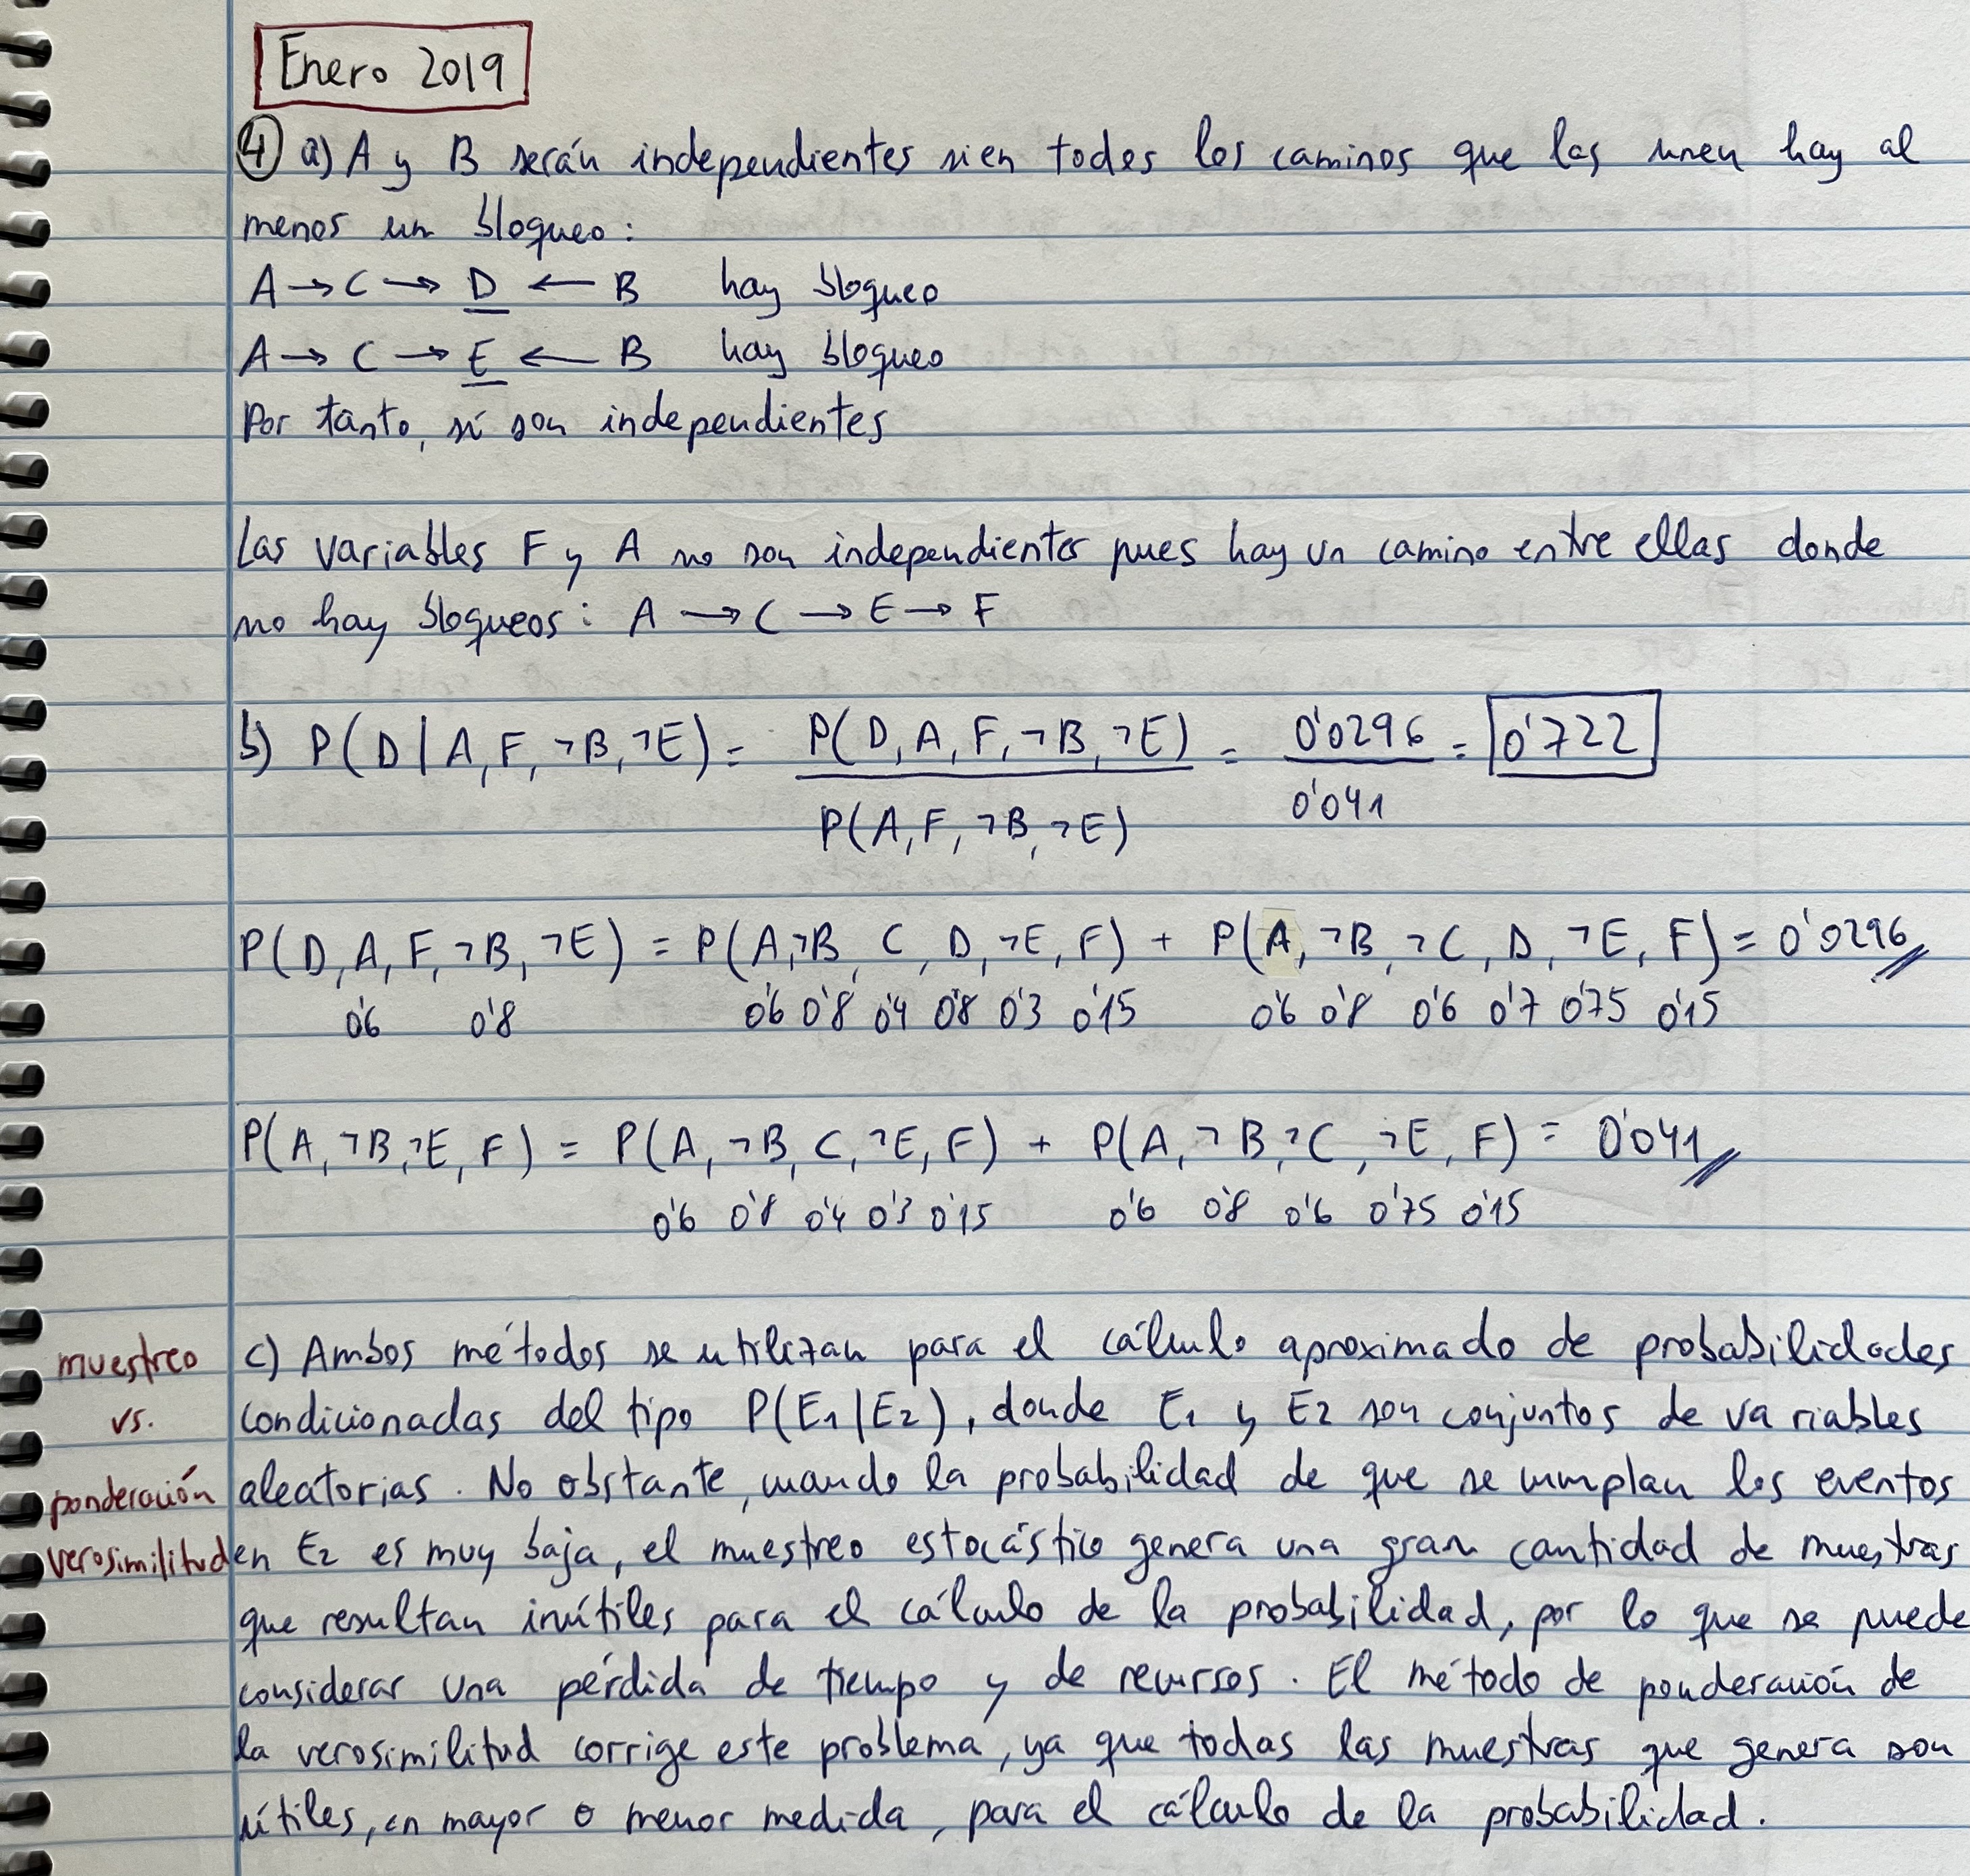 Enero 2019
4 a) A y B serán independientes si en todos los caminos que los unen hay al
menos un bloqueo:
A → C → D ← B hay bloqueo
A → C → E ← B hay bloqueo
Por tanto, sí son independientes
Las variables F y A no son independientes pues hay un camino entre ellas donde
no hay bloqueos: A → C → E → F
b) P(D|A,F,¬B,¬E) = P(D,A,F,¬B,¬E) = 0'0296 = 0'722
P(A,F,¬B,¬E) 0'041
P(D,A,F,¬B,¬E) = P(A,¬B,C,D,¬E,F) + P(A,¬B,¬C,D,¬E,F) = 0'0296
0'6 0'8 0'6 0'8 0'4 0'8 0'3 0'15 0'6 0'8 0'6 0'7 0'75 0'15
P(A,¬B,¬E,F) = P(A,¬B,C,¬E,F) + P(A,¬B,¬C,¬E,F) = 0'041
0'6 0'8 0'4 0'3 0'15 0'6 0'8 0'6 0'75 0'15
muestreo
vs.
ponderación
verosimilitud
c) Ambos métodos se utilizan para el cálculo aproximado de probabilidades
condicionadas del tipo P(E1|E2), donde E1 y E2 son conjuntos de variables
aleatorias. No obstante, cuando la probabilidad de que se cumplan los eventos
en E2 es muy baja, el muestreo estocástico genera una gran cantidad de muestras
que resultan inútiles para el cálculo de la probabilidad, por lo que se puede
considerar una pérdida de tiempo y de recursos. El método de ponderación de
la verosimilitud corrige este problema, ya que todas las muestras que genera son
útiles, en mayor o menor medida, para el cálculo de la probabilidad.